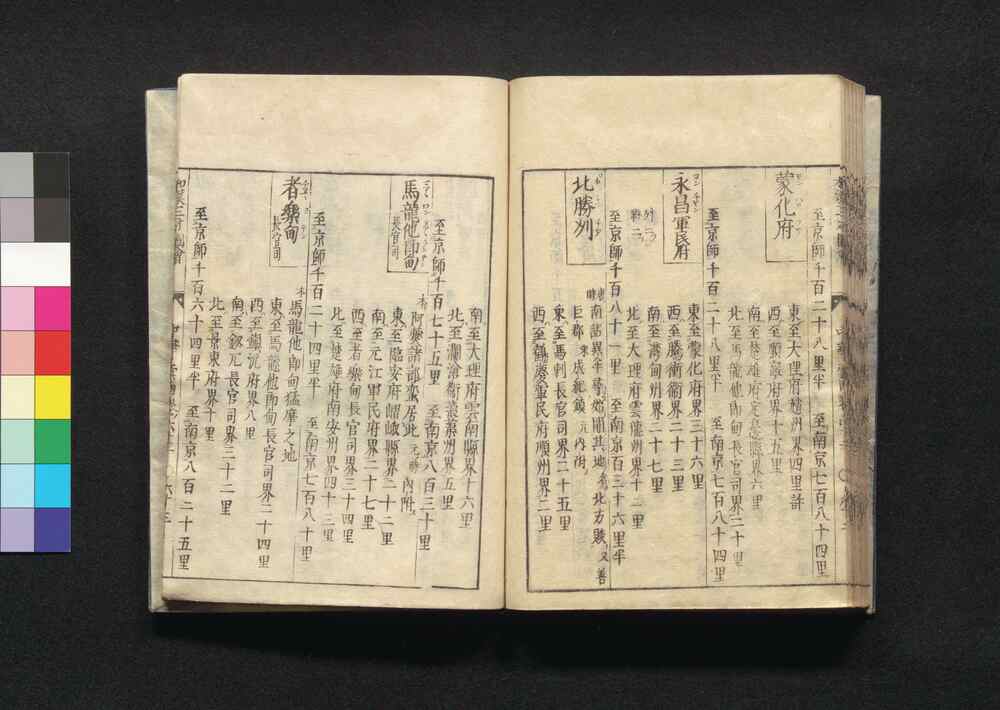 蒙化府
至京師千百二十八里半 至南京七百八十四里
東至大理府趙州界四里許
西至順寧府界十五里
南至楚雄府定邊縣界六里
北至馬龍他郎甸長官司界二十里
永昌軍民府
至京師千百二十八里半 至南京七百八十四里
東至蒙化府界三十六里
西至騰衝衛界二十三里
南至灣甸州界二十七里
北至大理府雲龍州界十二里
北勝州
至京師千百八十一里 至南京百三十六里半
唐時南詔異牟尋始開其地
東至馬剌長官司界二十五里
西至麗江軍民府順州界二里
南至大理府雲南縣界十六里
北至瀾滄衛蒗蕖州界五里
馬龍他郎甸長官司
至京師千百七十五里 至南京八百三十里
本阿僰諸部蠻居此元時內附
東至臨安府嶍峨縣界二十二里
南至元江軍民府界二十七里
西至者樂甸長官司界三十四里
北至楚雄府南安州界四十三里
者樂甸長官司
至京師千百二十四里半 至南京七百八十里
本馬龍他郎甸猛摩之地
東至馬龍他郎甸長官司界二十四里
西至鎮沅府界八里
南至鈕兀長官司界三十二里
北至景東府界十里
至京師千百六十四里半 至南京八百二十五里